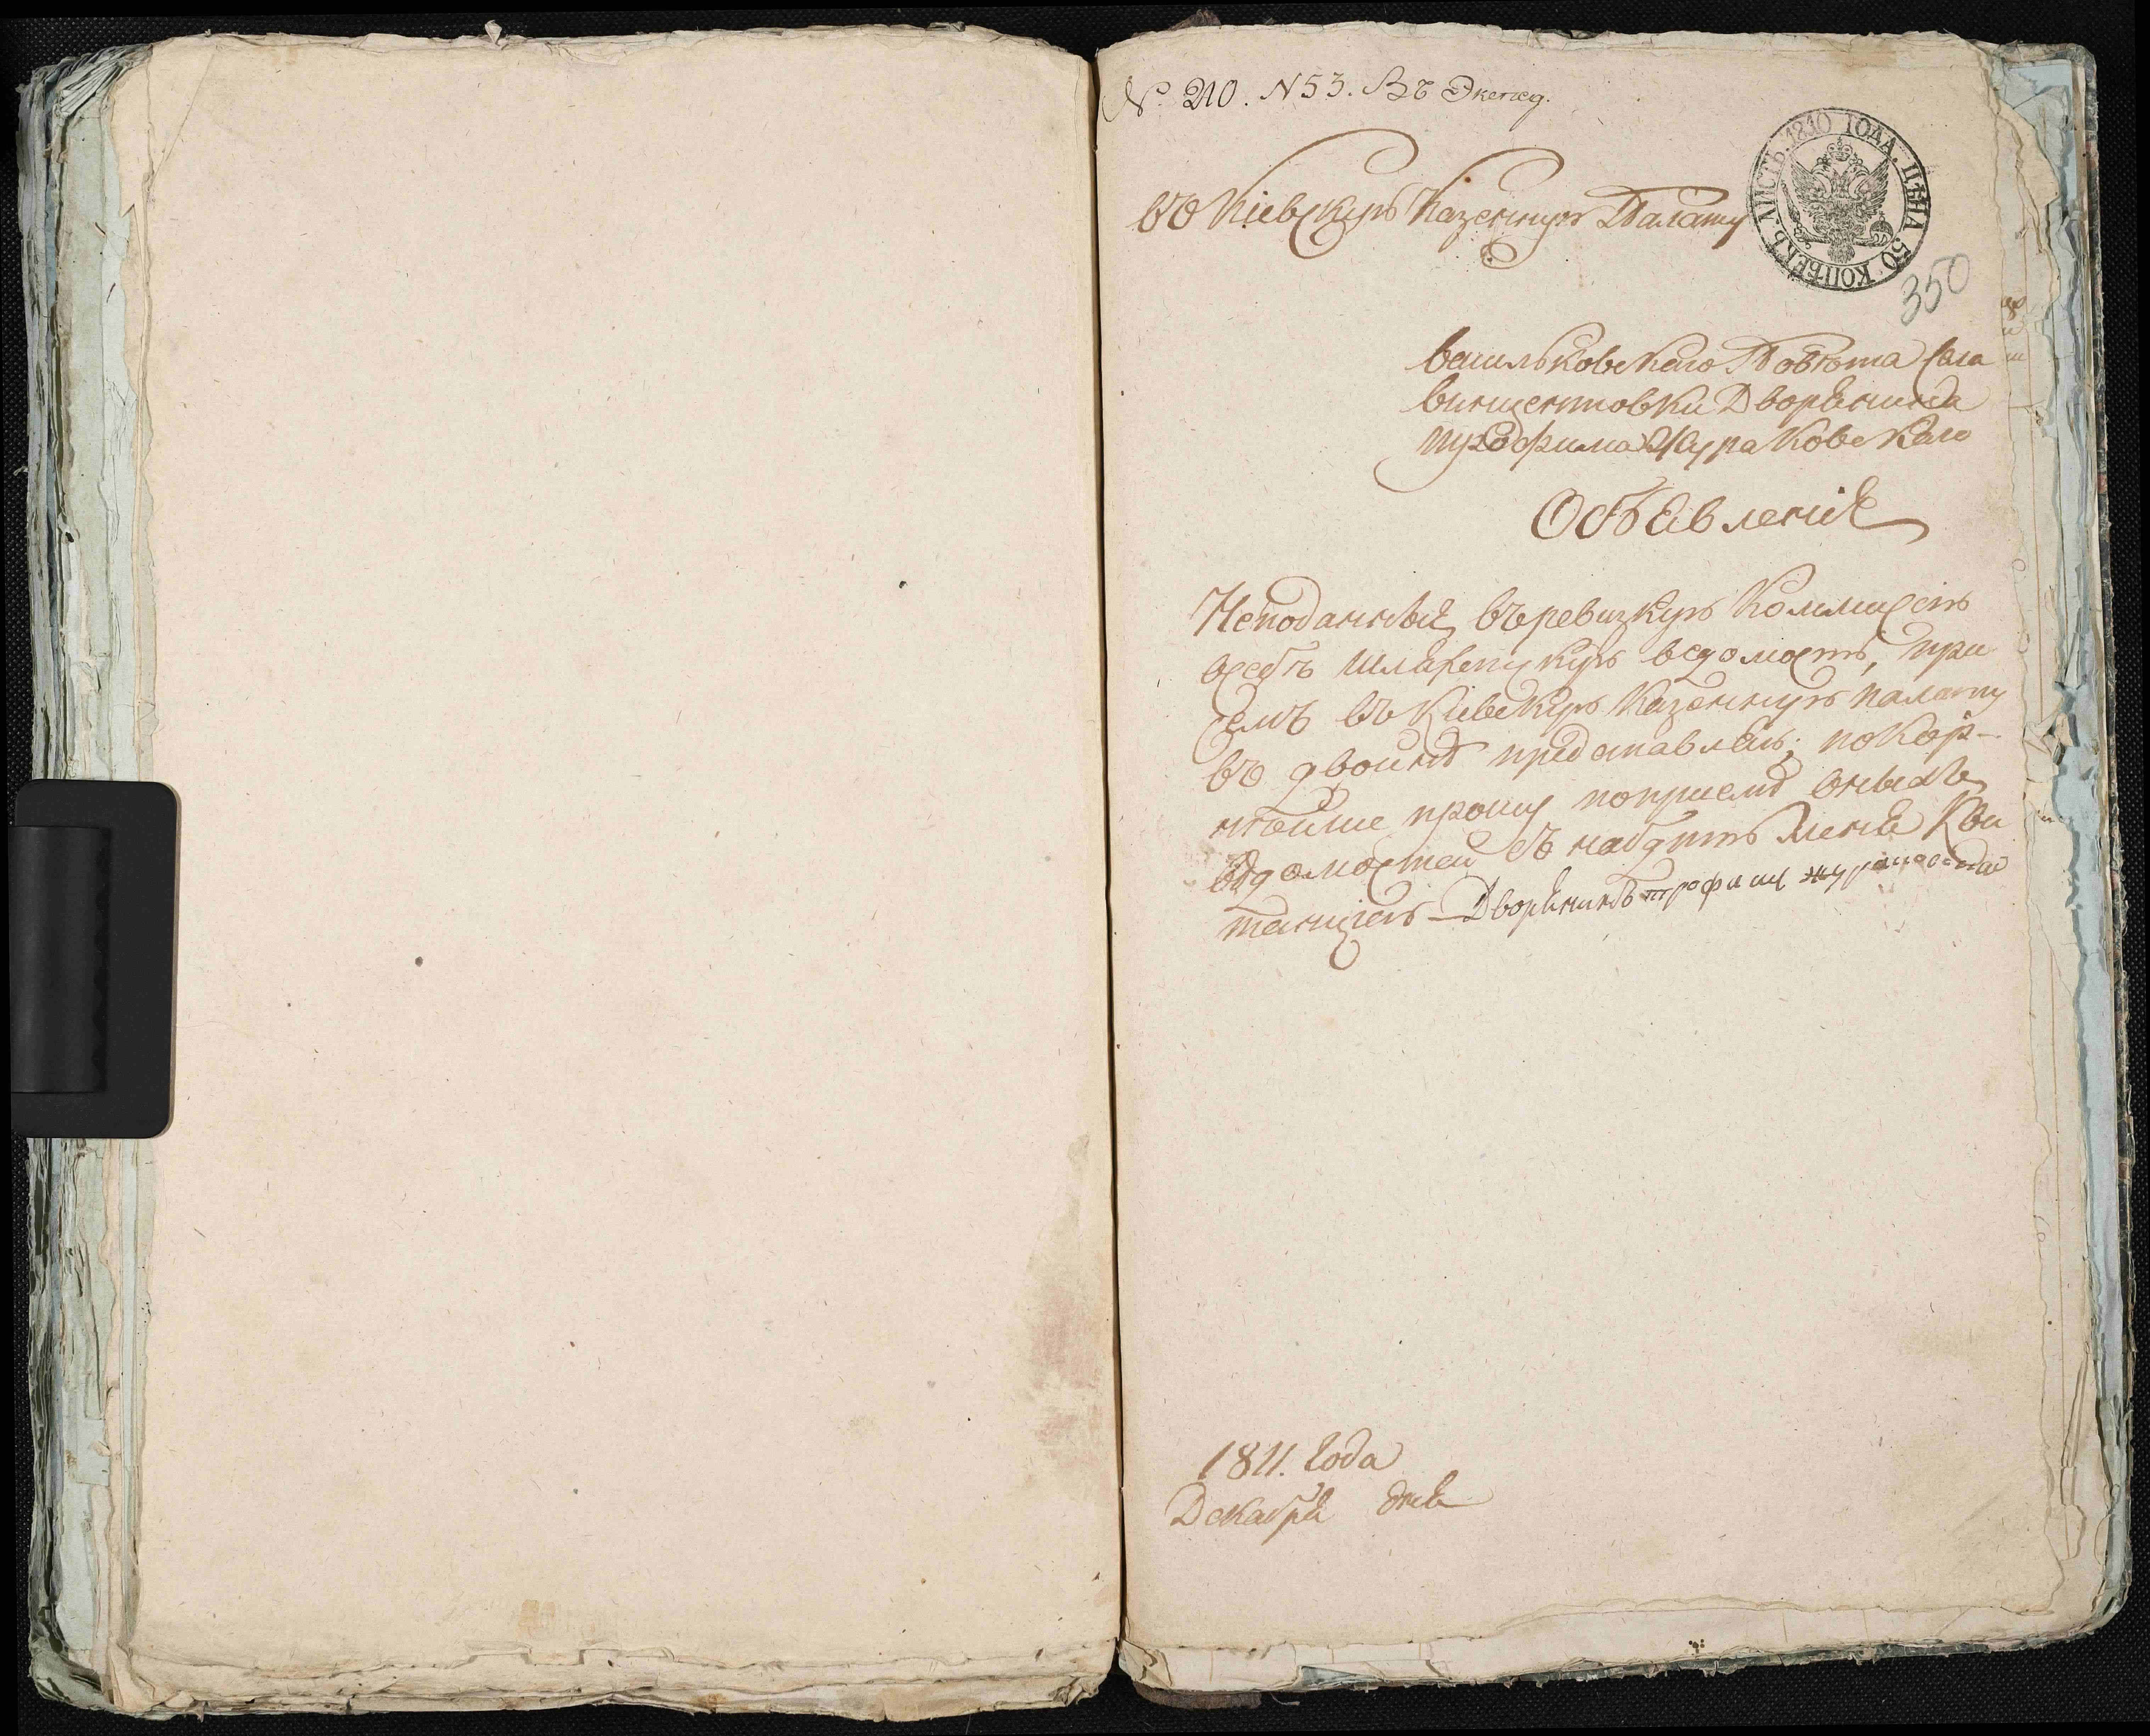 № 210. N 53. Въ Экспед.
ЛИСТЪ. 1810 ГОДА. ЦѢНА 50 КОПѢЕКЪ.
350
въ Кіевскую Казенную Палату
васильковскаго Повѣта села
винцентовки Дворянина
трофима Жураковскаго
Объявленіе
Неподанные въ ревизкую Коммисію
осебѣ шляхетскую ведомость, при
семъ въ Кіевскую Казенную палату
въ двойнѣ представляю, покор-
нейше прошу поприемѣ оныхъ
вѣдомостей снабдить меня Кви
танціею Дворянинъ трофим
1811. года
Декабря дня